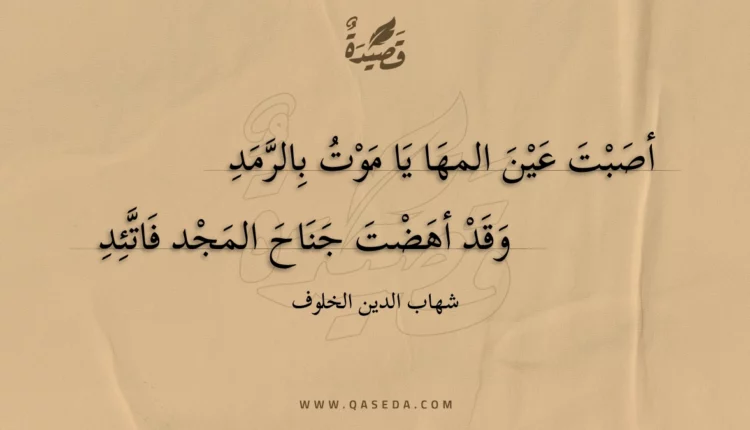 قَصِيْدَةٌ
أصَبْتَ عَيْنَ المهَا يَا مَوْتُ بِالرَّمَدِ
وَقَدْ أهَضْتَ جَنَاحَ المَجْد فَاتَّئِدِ
شهاب الدين الخلوف
WWW.QASEDA.COM